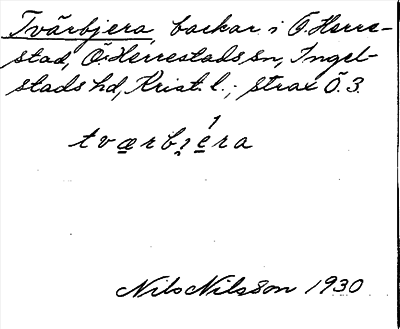 Tvärbjera, backar i Ö. Herre-
stad, Ö. Herrestads sn, Ingel-
stads hd, Krist. l.; strax Ö. 3.
1
tværbi̯era
Nils Nilsson 1930